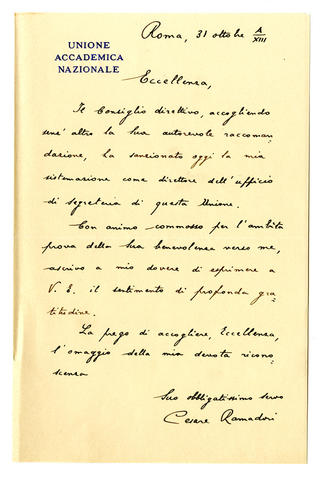 UNIONE
ACCADEMICA
NAZIONALE
Roma, 31 ottobre A/XIII
Eccellenza,
Il Consiglio direttivo, accogliendo
senz'altro la Sua autorevole raccoman
dazione, ha sanzionato oggi la mia
sistemazione come direttore dell'ufficio
di segreteria di questa Unione.
Con animo commosso per l'ambita
prova della Sua benevolenza verso me,
ascrivo a mio dovere di esprimere a
V. E. il sentimento di profonda gra
titudine.
La prego di accogliere, Eccellenza,
l'omaggio della mia devota ricono
scenza
Suo obbligatissimo servo
Cesare Ramadori